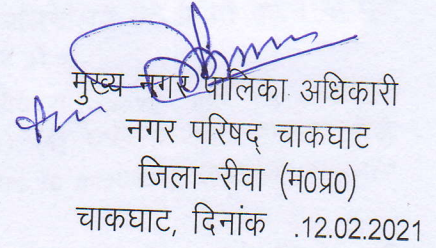 मुख्य नगर पालिका अधिकारी
नगर परिषद् चाकघाट
जिला–रीवा (म0प्र0)
चाकघाट, दिनांक .12.02.2021